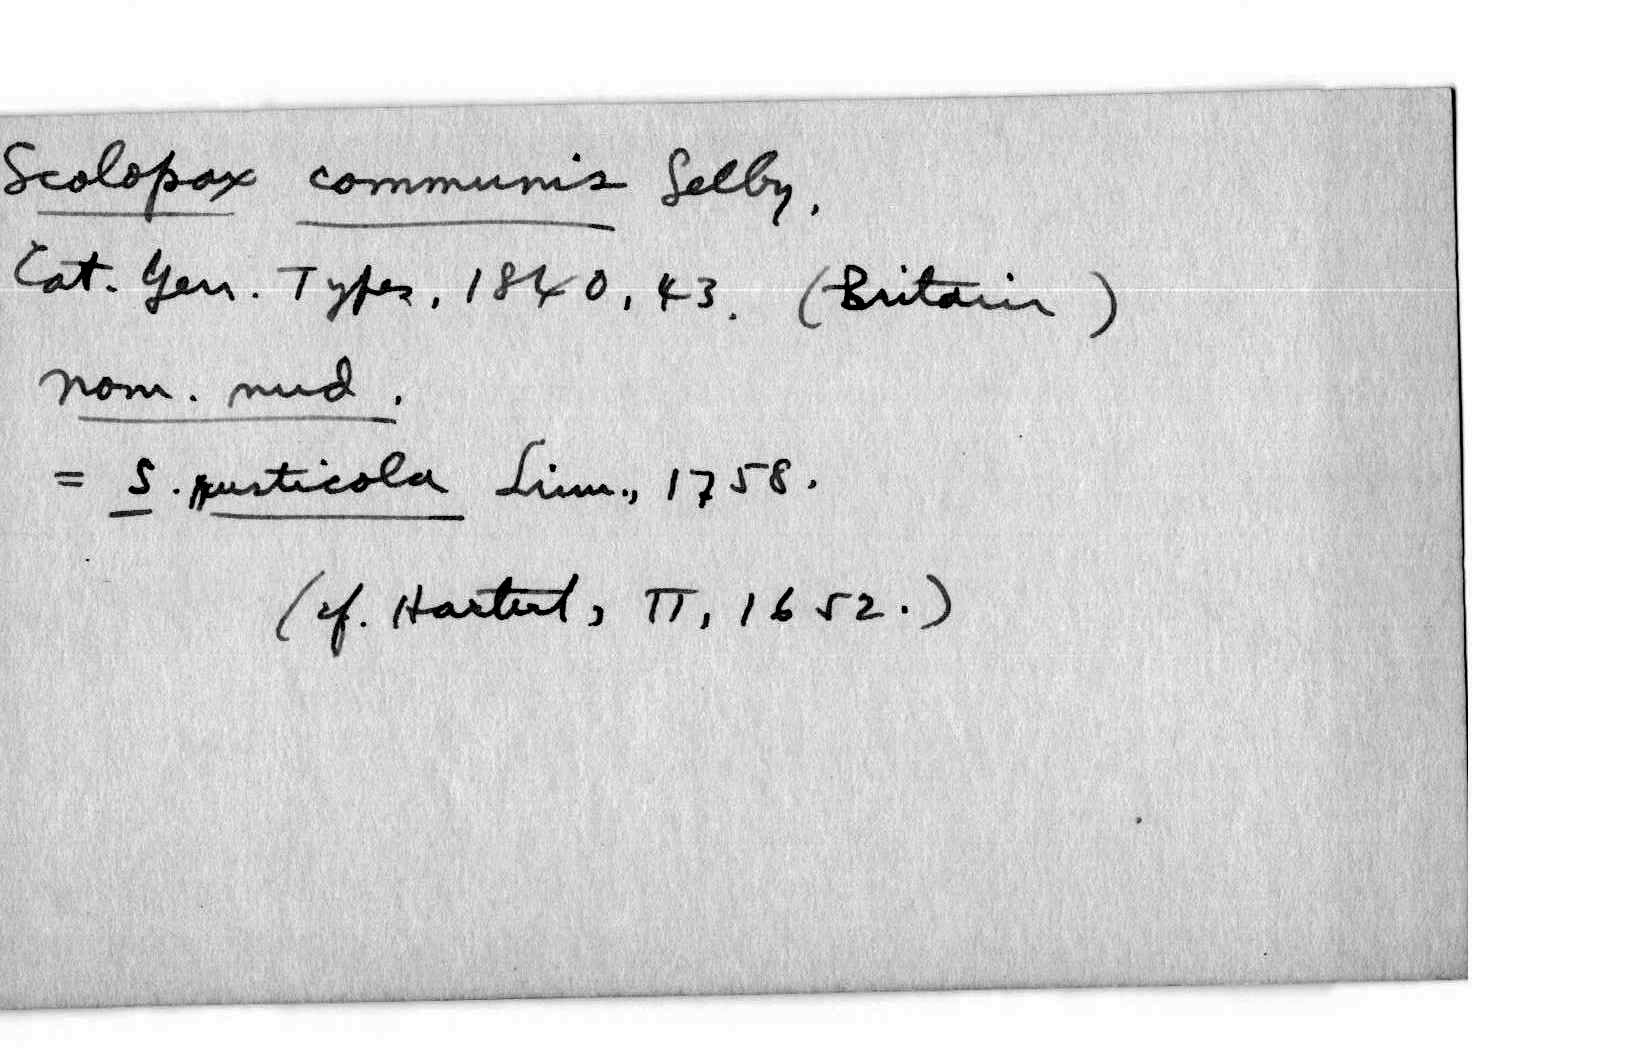 Scolopax communis Selby,
Cat. Gen. Types, 1840, 43. (Britain)
nom. nud.
= S. rusticola Linn., 1758.
(cf. Hartert, II, 1652.)